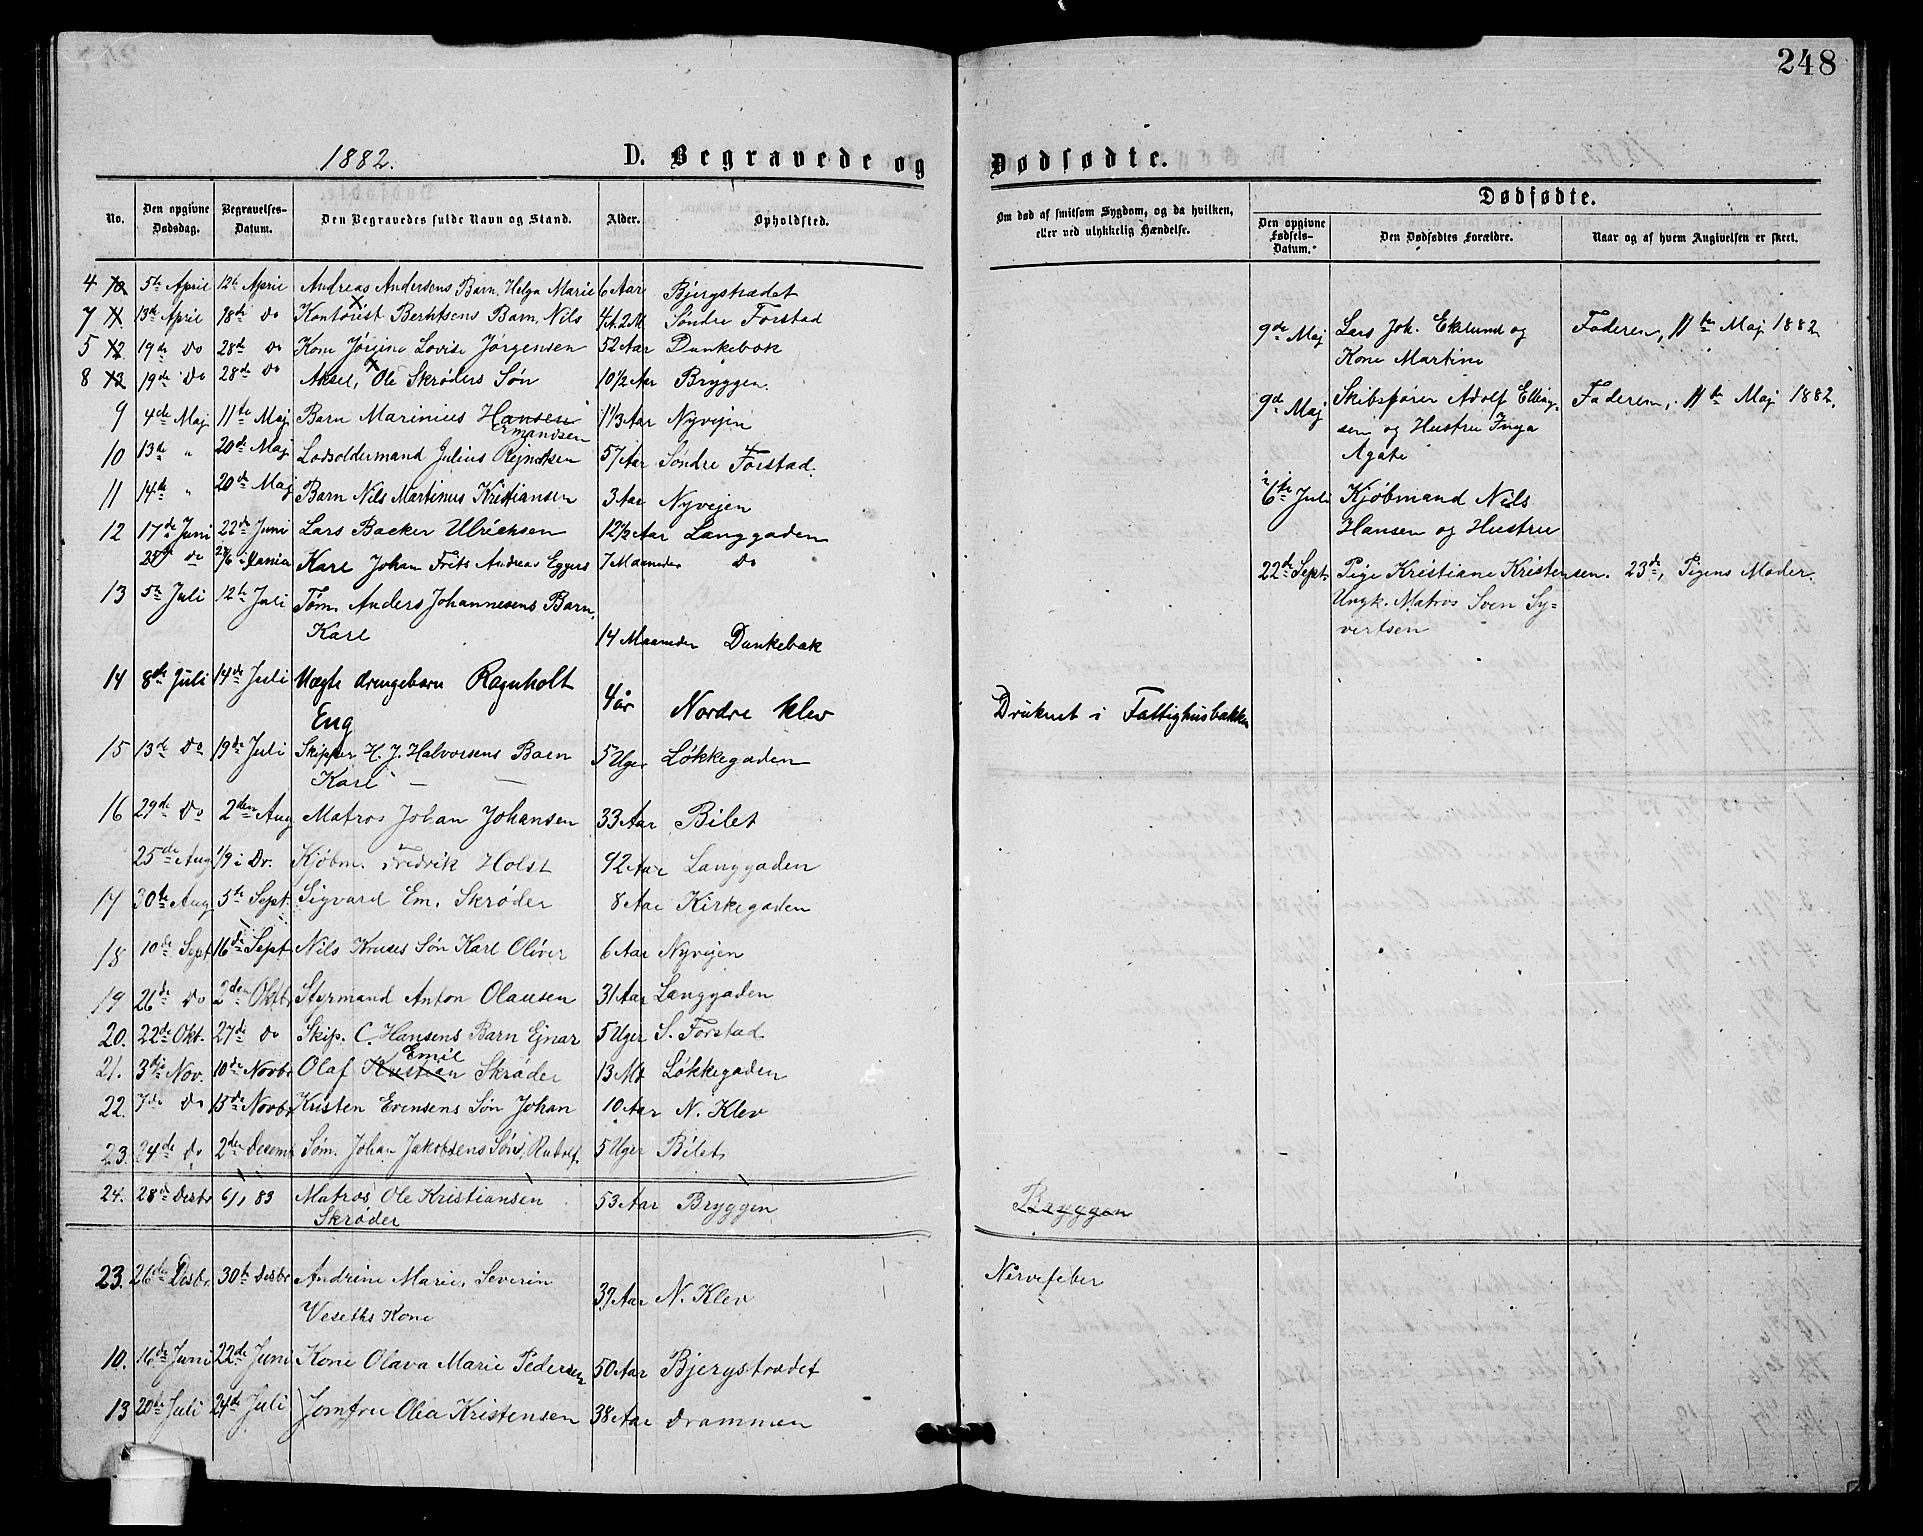 248
1882. D. Begravede og Dødsødte.
No. Den opgivne Dødsdag. Begravelses-Datum. Den Begravedes fulde Navn og Stand. Alder. Opholdsted. Om død af smitsom Sygdom, og da hvilken, eller ved ulykkelig Hændelse. Dødsødte. Den opgivne Fødsels-Datum. Den Dødsødtes Forældre. Naar og af hvem Angivelsen er skeet.
4 10 5te April 12te April Andreas Andersens Barn, Helga Marie 6 Aar Bjergstrædet
7 11 13de April 18de Do Kontorist Berntsens Barn, Nils 4 A. 2 M. Søndre Forstad
5 12 19de Do 28de Do Kone Jørgine Lovise Jørgensen 52 Aar Dunkebæk
8 13 19de Do 28de Do Aksel, Ole Skrøders Søn 10 1/2 Aar Bryggen.
9 4de Maj 11te Maj Barn Marinius Hansen
Ermandsen 1 1/3 Aar Nyvejen
10 13de " 20de Maj Lodsoldermand Julius Rejnertsen 57 Aar Søndre Forstad.
11 14de " 20de Maj Barn Nils Martinus Kristiansen 3 Aar Nyvejen
12 17de Juni 22de Juni Lars Backer Ulrichsen 12 1/2 Aar Langgaden
Do Karl Johan Frits Andreas Eggers 7 Maaneder Do
13 5te Juli 12te Juli Tøm. Anders Johannesens Barn,
Karl 14 Maaneder Dunkebæk
14 8de Juli 14de Juli Uægte drengebarn Ragnholt
Eng 4 år Nordre Klev Druknet i Fattighusbakken
15 13de Do 19de Juli Skipper H. J. Halvorsens Barn
Karl 5 Uger Løkkegaden
16 29de Do 2den Aug Matros Johan Johansen 33 Aar Bilet
25de Aug 1/9 i Dr. Kjøbm. Fredrik Holst 92 Aar Langgaden
17 30te Aug 5te Sept. Sigvard Em. Skrøder 8 Aar Kirkegaden
18 10de Sept. 16de Sept Nils Kruses Søn Karl Oliver 6 Aar Nyvejen
19 26de Do 2den Oktb Styrmand Anton Olausen 31 Aar Langgaden
20. 22de Okt. 27de Do Skip. C. Hansens Barn Ejnar 5 Uger S. Forstad
Emil
21. 3die Nov. 10de Novbr Olaf Kristian Skrøder 13 Md Løkkegaden
22. 7de Do 15de Novbr Kristen Evensens Søn Johan 10 Aar N. Klev
23. 24de Do 2den Desemb Søm. Johan Jakobsens Søn, Rudolf 5 Uger Bilet
24. 28de Desbr 6/1 83 Matros Ole Kristiansen
Skrøder 53 Aar Bryggen Bryggen
23. 26de Desbr. 30te Desbr Andrine Marie, Severin
Veseths Kone 37 Aar N. Klev Nervefeber
10. 16de Juni 22de Juni Kone Olava Marie Pedersen 50 Aar Bjergstrædet
13 20de Juli 24de Juli Jomfru Olea Kristensen 38 Aar Drammen
9de Maj Lars Joh. Eklund og Faderen, 11te Maj 1882
Kone Martine
9de Maj Skibsfører Adolf Elling- Faderen, 11te Maj 1882.
sen og Hustru Inga
Agate
6te Juli Kjøbmand Nils
Hansen og Hustru
22de Sept. Pige Kristiane Kristensen. 23de, Pigens Moder.
Ungk. Matros Sven Sy-
vertsen